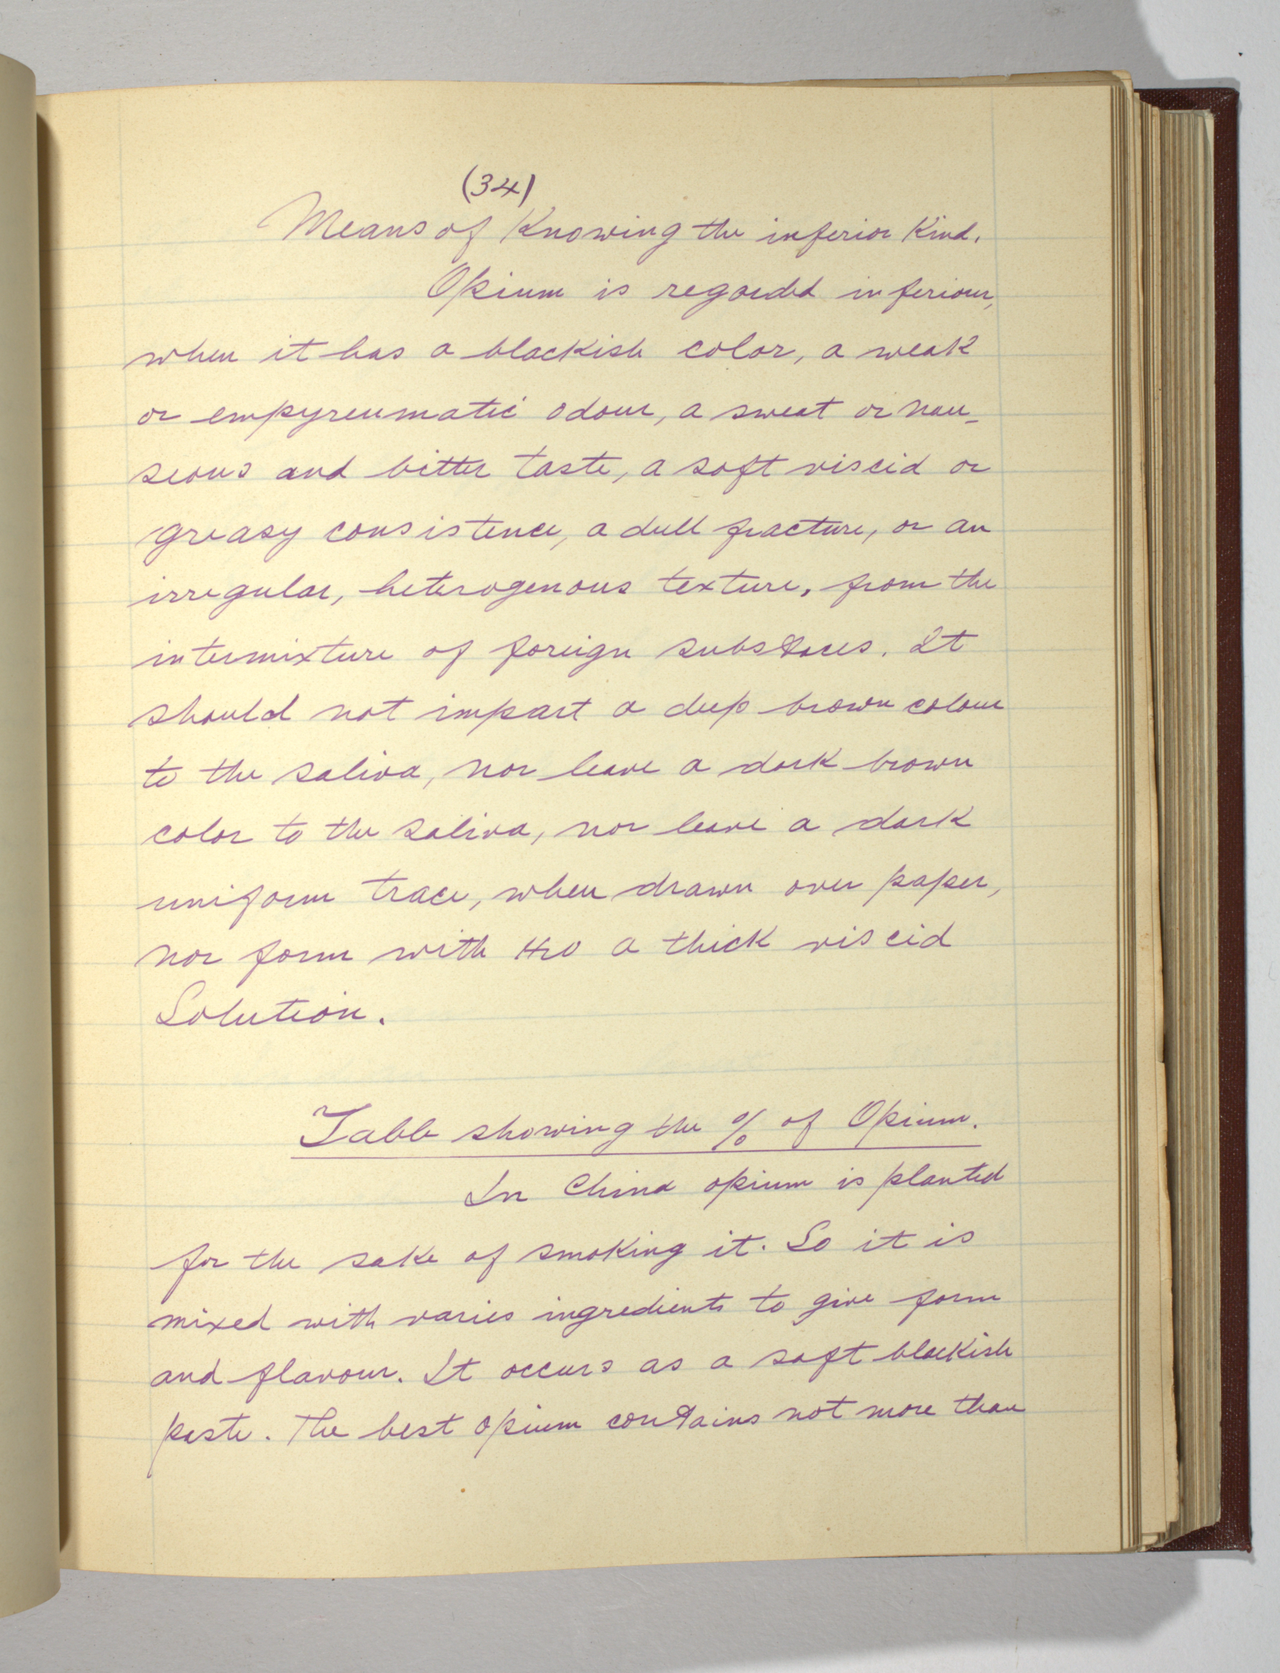 (34)
Means of Knowing the inferior Kind.
Opium is regarded inferiour,
when it has a blackish color, a weak
or empyreumatic odour, a sweat or nau-
seous and bitter taste, a soft viscid or
greasy consistence, a dull fracture, or an
irregular, heterogenous texture, from the
intermixture of foreign substaces. It
should not impart a deep brown colour
to the saliva, nor leave a dark brown
color to the saliva, nor leave a dark
uniform trace, when drawn over paper,
nor form with H2O a thick viscid
Solution.
Table showing the % of Opium.
In China opium is planted
for the sake of smoking it. So it is
mixed with varies ingredients to give form
and flavour. It occurs as a soft blackish
paste. The best opium contains not more than